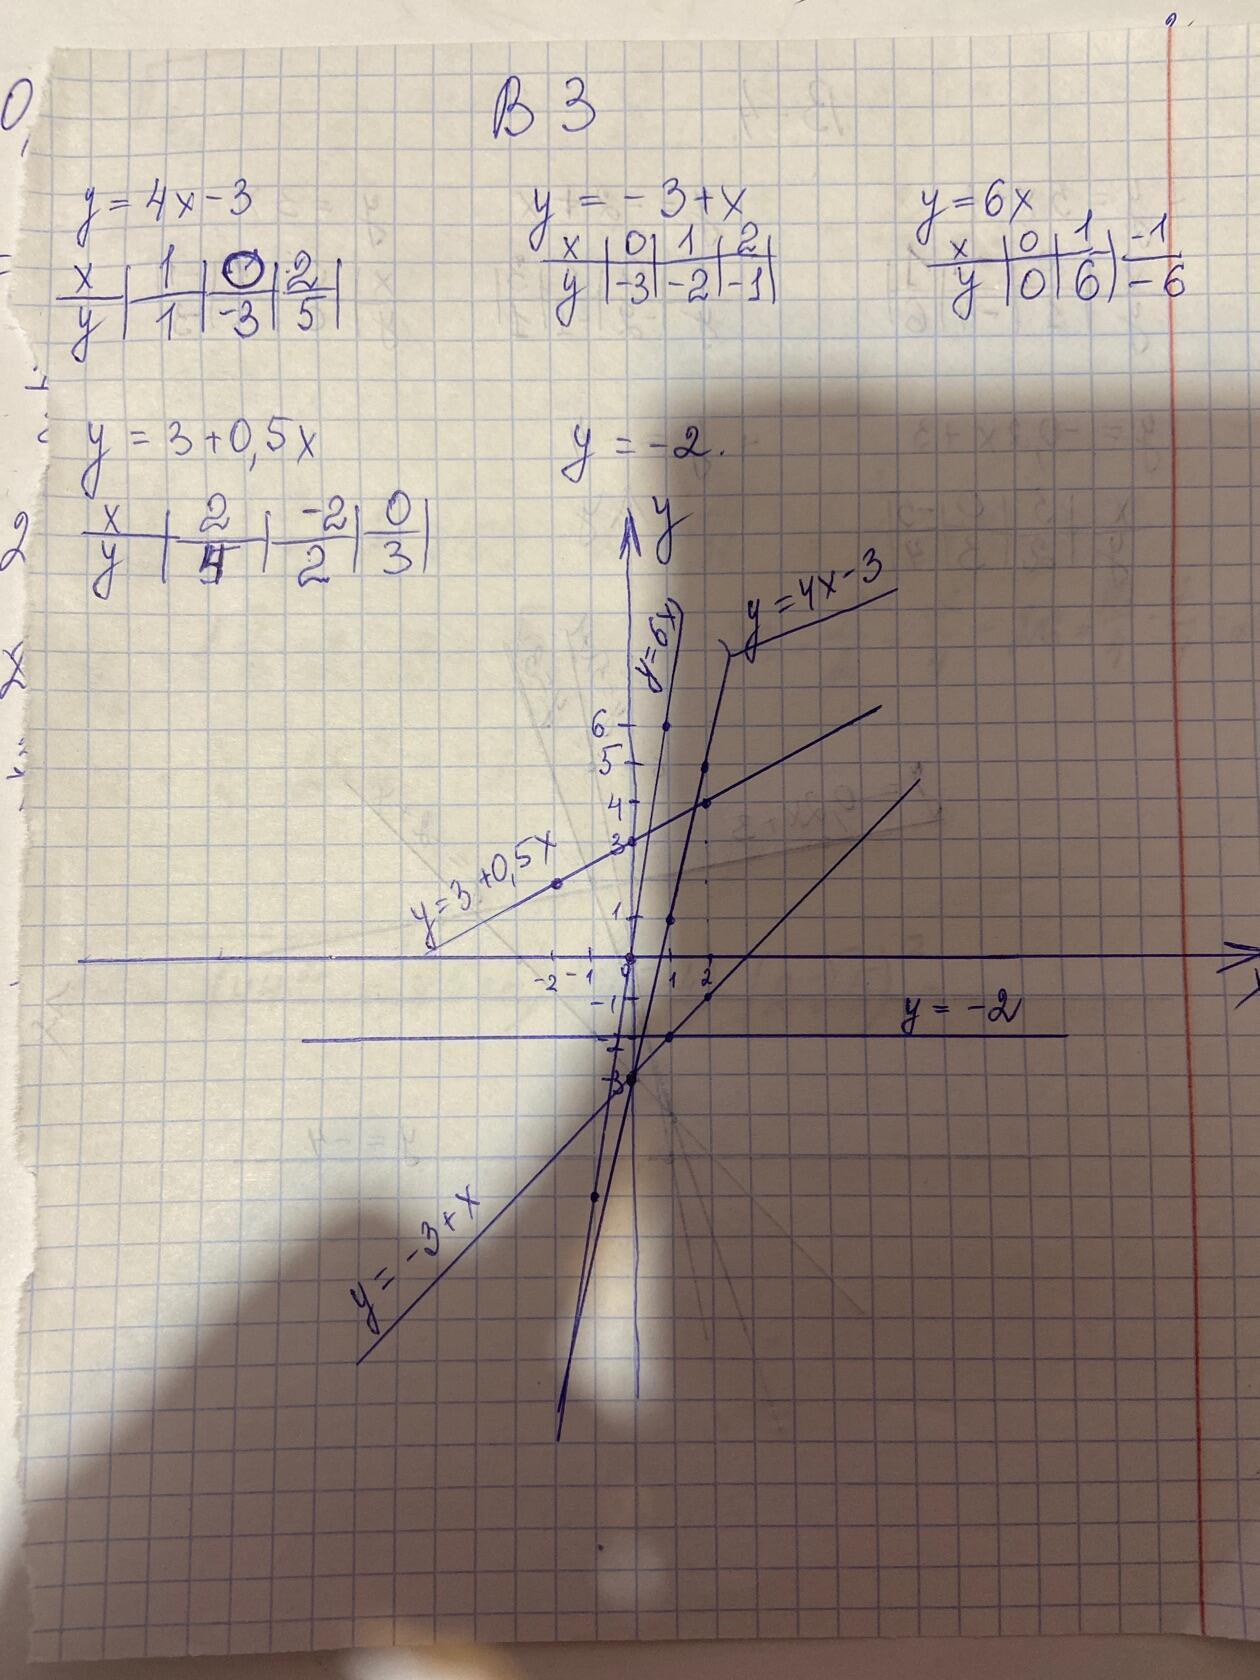 В 3
y = 4x - 3
x | 1 | 0 | 2 |
y | 1 | -3 | 5 |
y = - 3 + x
x | 0 | 1 | 2 |
y | -3 | -2 | -1 |
y = 6x
x | 0 | 1 | -1
y | 0 | 6 | -6
y = 3 + 0,5x
x | 2 | -2 | 0 |
y | 4 | 2 | 3 |
y = -2.
y
y = 4x - 3
y = 6x
6
5
4
3
y = 3 + 0,5x
1
-2 -1 0 1 2
-1
y = -2
-3
y = -3 + x